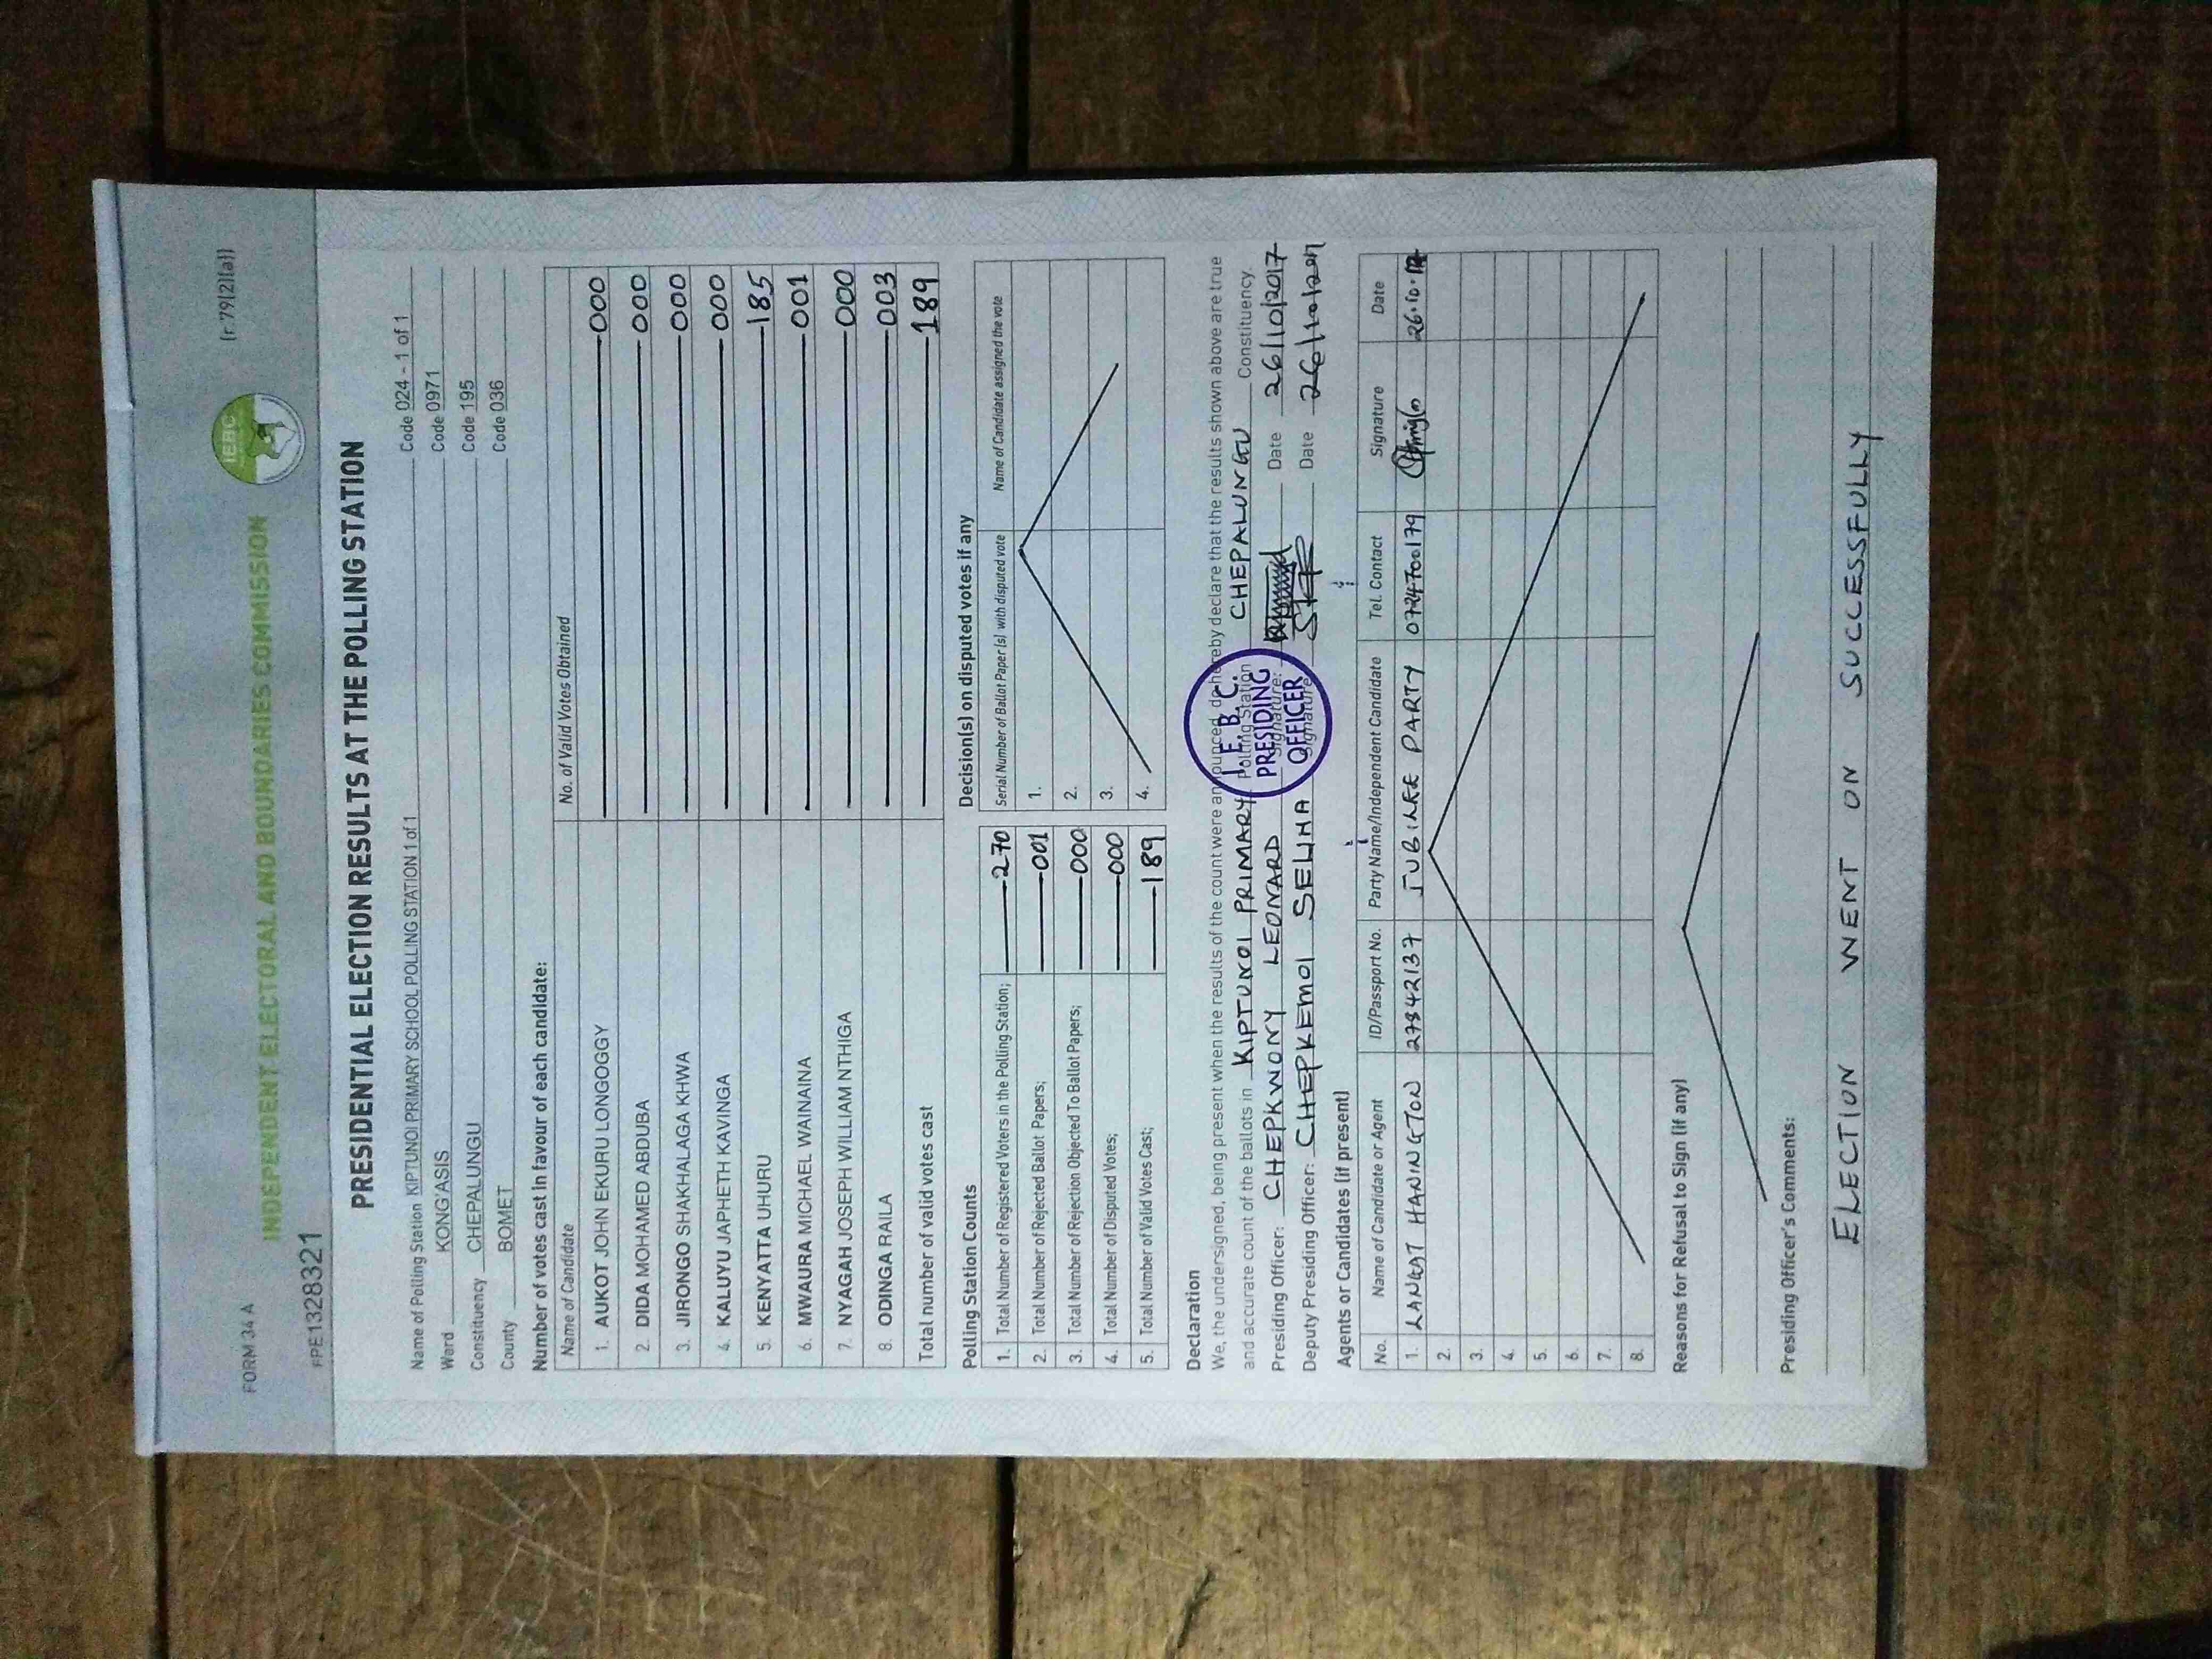 FORM 34 A
(r 79(2)(a))
IEBC
INDEPENDENT ELECTORAL AND BOUNDARIES COMMISSION
FPE1328321
PRESIDENTIAL ELECTION RESULTS AT THE POLLING STATION
Name of Polling Station KIPTUNOI PRIMARY SCHOOL POLLING STATION 1 of 1 Code 024 - 1 of 1
Ward KONG'ASIS Code 0971
Constituency CHEPALUNGU Code 195
County BOMET Code 036
Number of votes cast in favour of each candidate:
Name of Candidate No. of Valid Votes Obtained
1. AUKOT JOHN EKURU LONGOGGY 000
2. DIDA MOHAMED ABDUBA 000
3. JIRONGO SHAKHALAGA KHWA 000
4. KALUYU JAPHETH KAVINGA 000
5. KENYATTA UHURU 185
6. MWAURA MICHAEL WAINAINA 001
7. NYAGAH JOSEPH WILLIAM NTHIGA 000
8. ODINGA RAILA 003
Total number of valid votes cast 189
Polling Station Counts
1. Total Number of Registered Voters in the Polling Station; 270
2. Total Number of Rejected Ballot Papers; 001
3. Total Number of Rejection Objected To Ballot Papers; 000
4. Total Number of Disputed Votes; 000
5. Total Number of Valid Votes Cast; 189
Decision(s) on disputed votes if any
Serial Number of Ballot Paper (s) with disputed vote Name of Candidate assigned the vote
1.
2.
3.
4.
Declaration
We, the undersigned, being present when the results of the count were announced, do hereby declare that the results shown above are true
and accurate count of the ballots in KIPTUNOI PRIMARY Polling Station CHEPALUNGU Constituency.
Presiding Officer: CHEPKWONY LEONARD Signature: Date 26/10/2017
Deputy Presiding Officer: CHEPKEMOI SELHA Signature: Date 26/10/2017
I.E.B.C.
PRESIDING
OFFICER
Agents or Candidates (if present)
No. Name of Candidate or Agent ID/Passport No. Party Name/Independent Candidate Tel. Contact Signature Date
1. LANGAT HANINGTON 27842137 JUBILEE PARTY 0724700179 26.10.17
2.
3.
4.
5.
6.
7.
8.
Reasons for Refusal to Sign (if any)
Presiding Officer's Comments:
ELECTION WENT ON SUCCESSFULLY